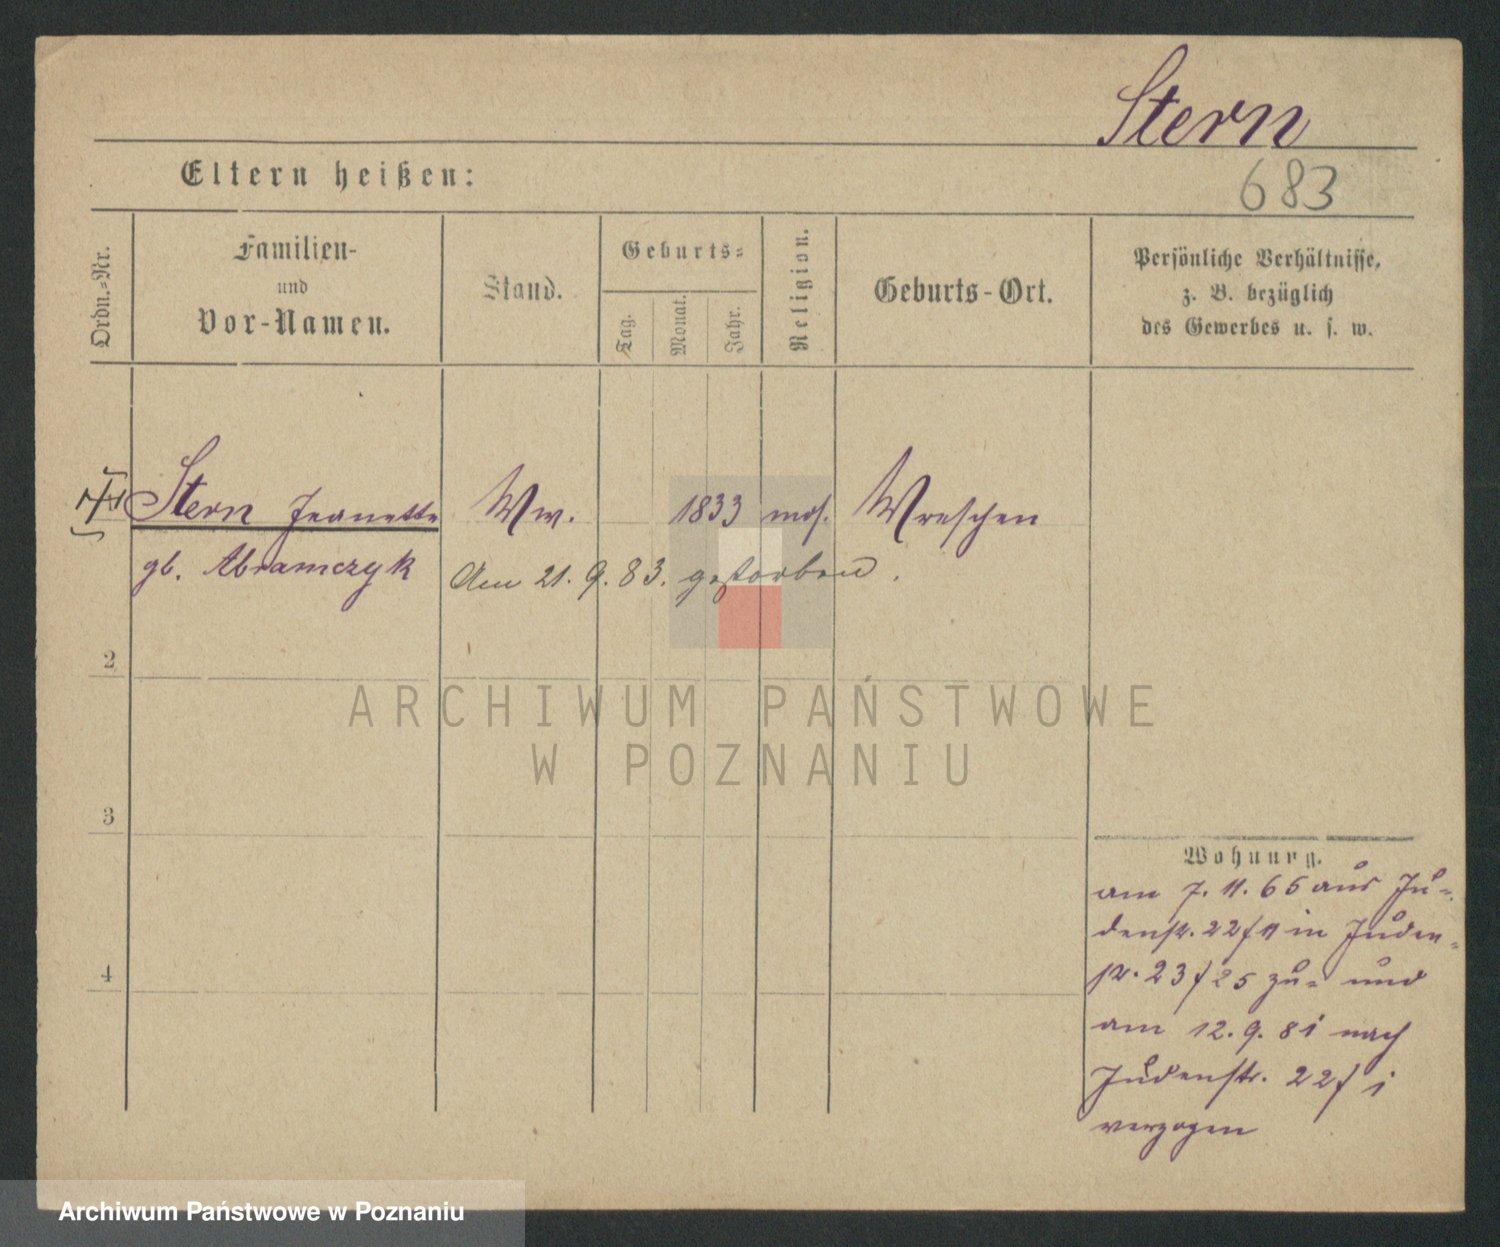 Stern
Eltern heißen:
683
Ordn.=Nr.
Familien-
und
Vor-Namen.
Stand.
Geburts=
Tag.
Monat.
Jahr.
Religion.
Geburts-Ort.
Persönliche Verhältnisse,
z. B. bezüglich
des Gewerbes u. s. w.
Stern Jeanette Ww. 1833 mos. Wreschen
gb. Abramczyk Am 21. 9. 83. gestorben.
2
3
4
ARCHIWUM PAŃSTWOWE
W POZNANIU
Wohnung.
am 7. 11. 65 aus Ju=
denstr. 22/11 in Juden=
str. 23/25 zu= und
am 12. 9. 81 nach
Judenstr. 22/i
verzogen
Archiwum Państwowe w Poznaniu